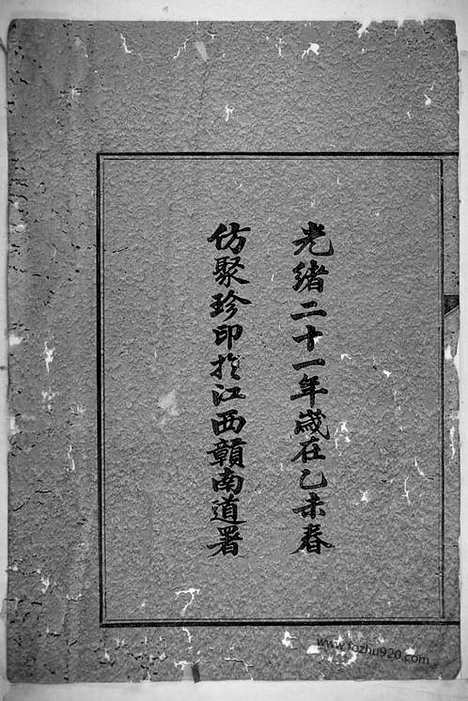 光緒二十一年歲在乙未春
仿聚珍印於江西贛南道署
www.fozhu920.com